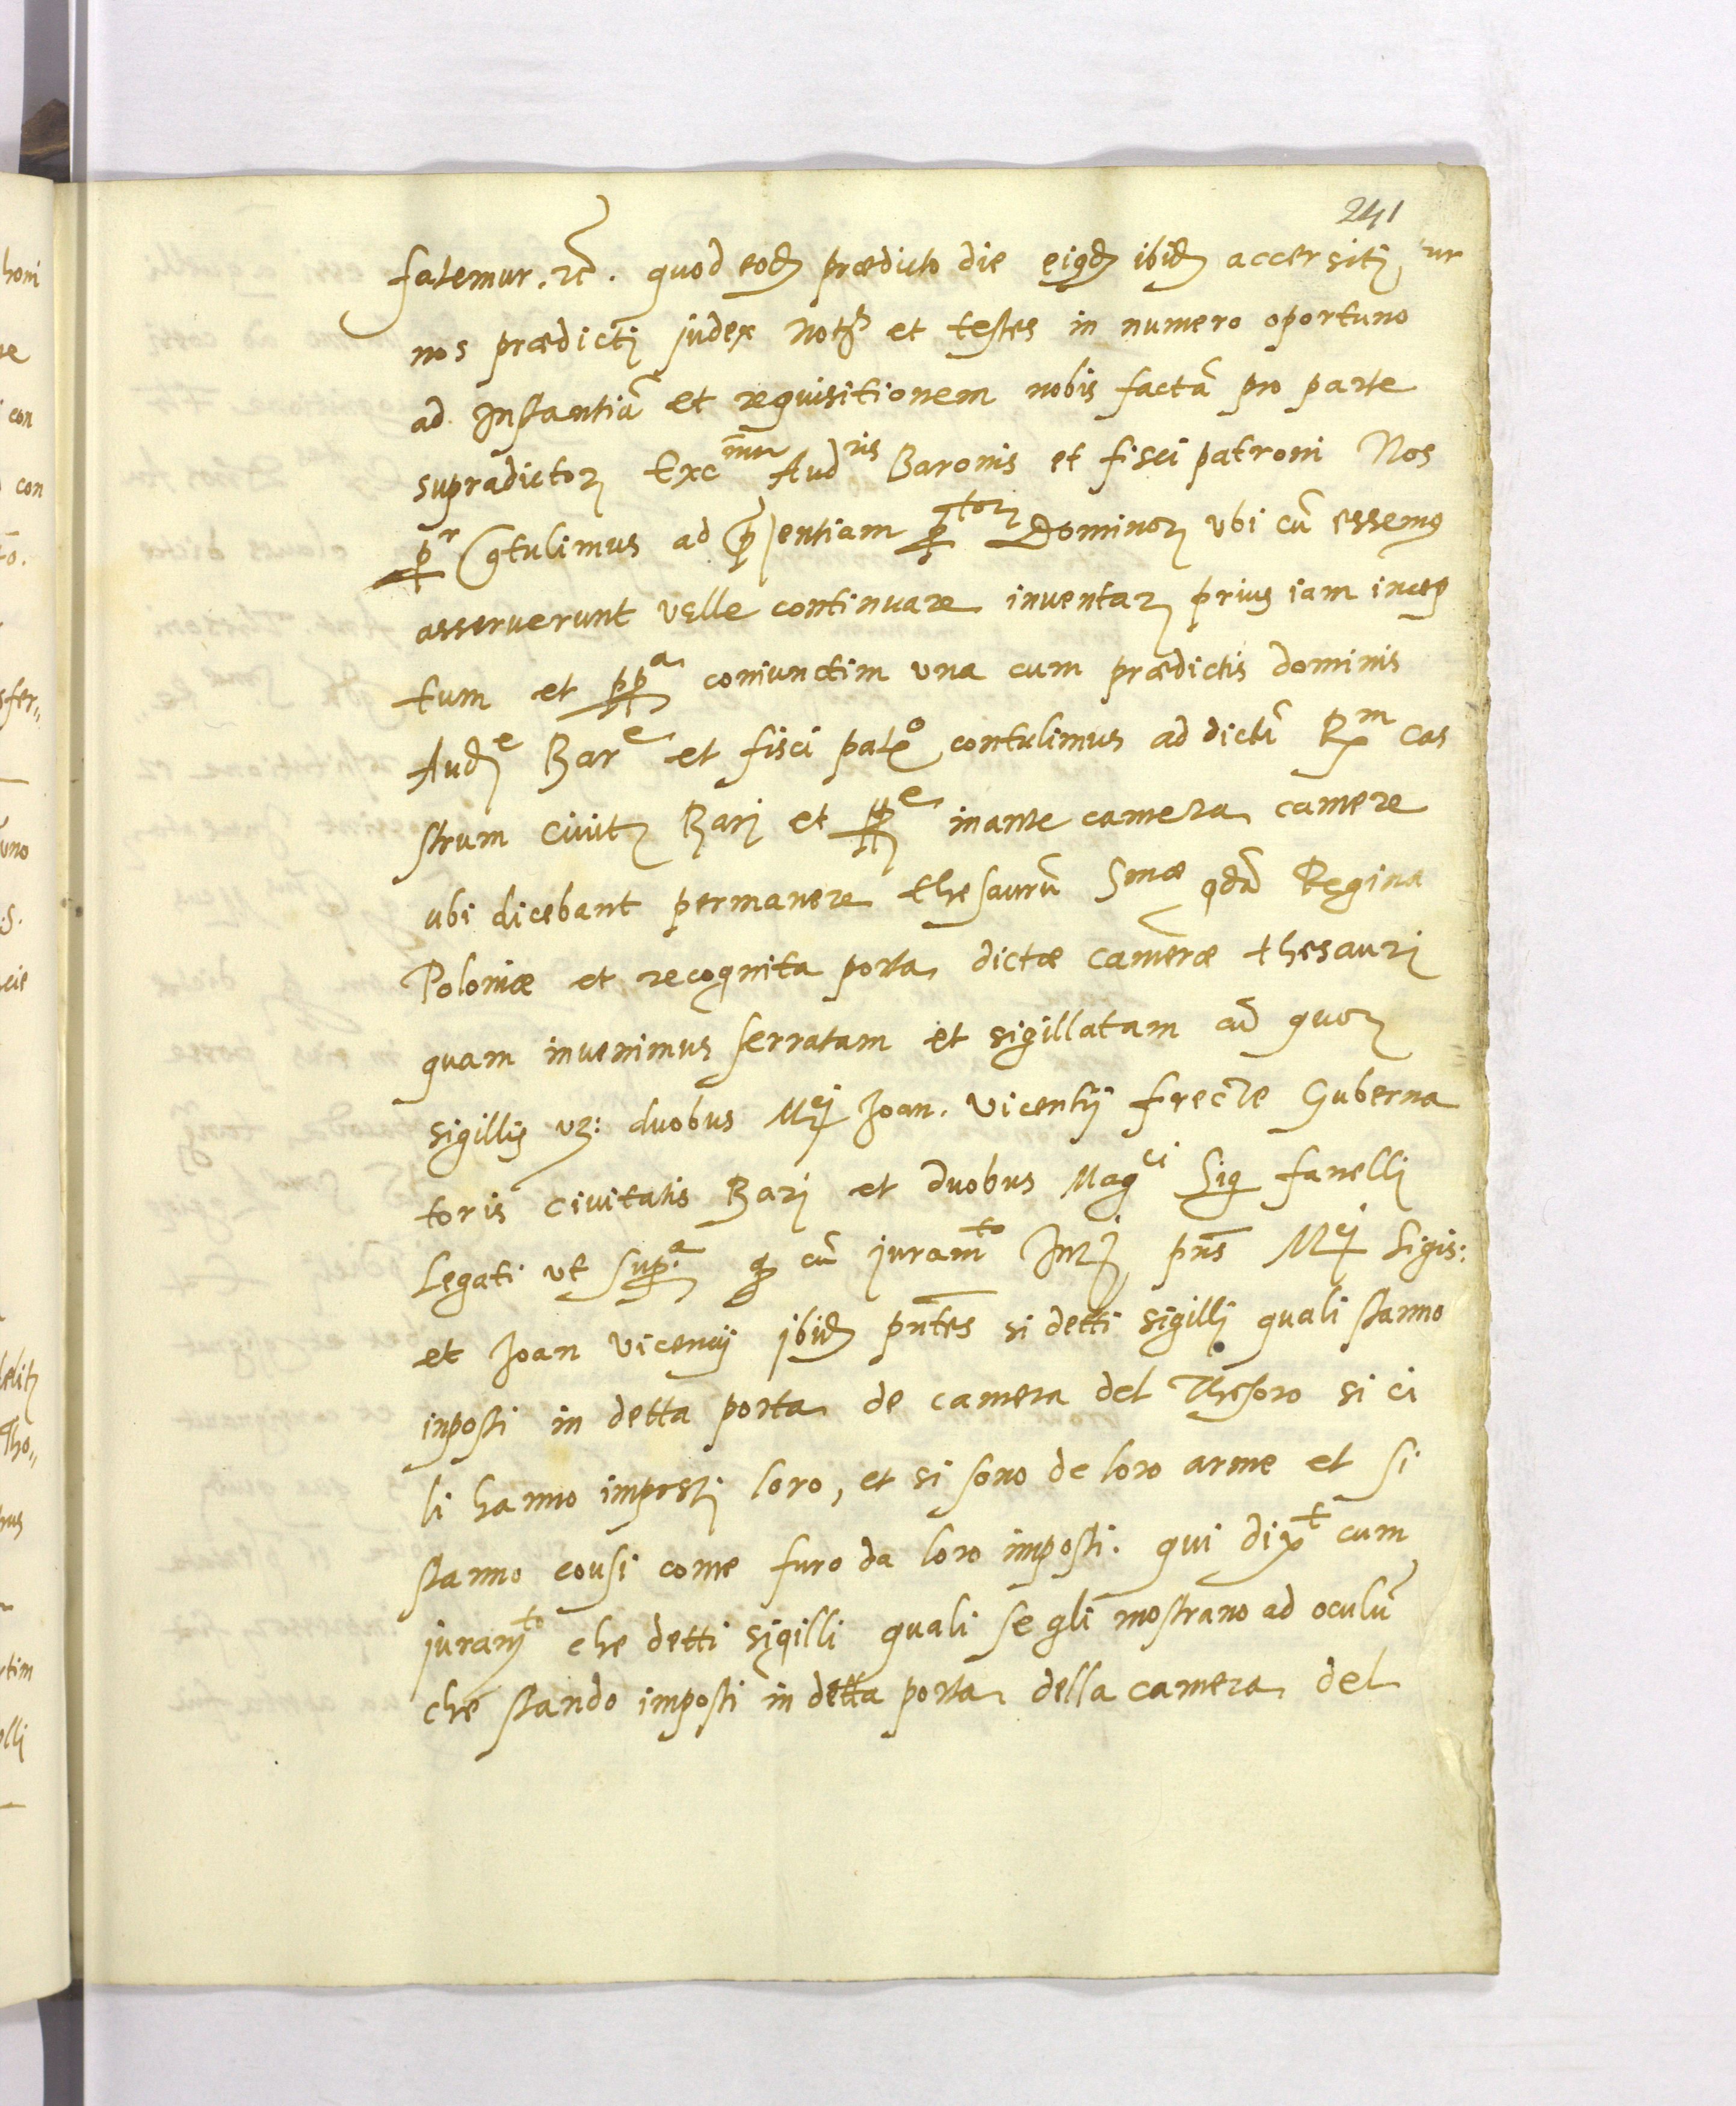 241
fatemur. etc. quod eod prædicto die eiqd ibid accersiti
nos prædicti judex Not et testes in numero oportuno
ad Instantiā et requisitionem nobis factā pro parte
supradictor Exc Aud^ris Baronis et fisci patroni Nos
contulimus ad p͞ntiam Dominor ubi cū essemus
asseruerunt velle continuare inventar prius iam incep
tum et pp^a coniunctim una cum prædictis dominis
Aud^e Bar^e et fisci patr^o contulimus ad dictū R^m cas
strum Civit Bari et pp^e in ante camera camere
ubi dicebant permanere thesaurū S^mæ qdā Regina
Poloniæ et recognita porta dictæ cameræ thesauri
quam invenimus serratam et sigillatam cū quor
sigillis vz: duobus M^ci Joan. Vicentij frecte Guberna
toris civitatis Bari et duobus Mag^ci Sig fanelli
Legati ut sup.^a q cū juram^to p͞ns M^ci Sigis:
et Joan vicencij ibid p͞ntes si detti sigilli quali stanno
inposti in detta porta de camera del Thesoro si ci
li hanno imposti loro, et si sono de loro arme et si
stanno cousi come furo da loro imposti. qui dix^t cum
juram^to che detti sigilli quali se gli mostrano ad oculū
che stando imposti in detta porta della camera del
honi
con
con
sfer„
uno
.S.
cie
Tho„
rtim
olli